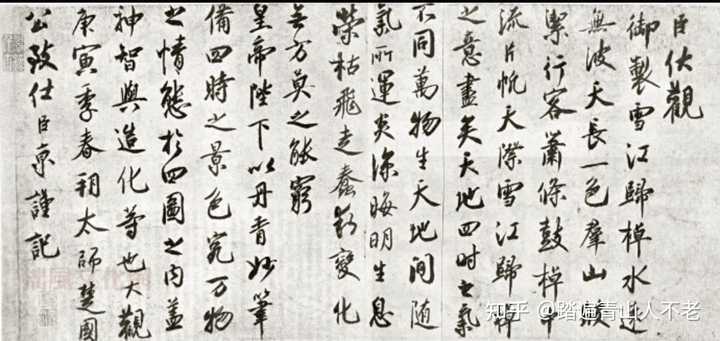 臣伏觀
御製雪江歸棹水遠
無波天長一色羣山皎
潔行客蕭條鼓棹中
流片帆天際雪江歸棹
之意盡矣天地四時之氣
不同萬物生天地間隨
氣所運炎涼晦明生息
榮枯飛走蠢動變化
無方莫之能窮
皇帝陛下以丹青妙筆
備四時之景色究萬物
之情態於四圖之内蓋
神智與造化等也大觀
庚寅季春朔太師楚國
公致仕臣京謹記
知乎 @踏遍青山人不老